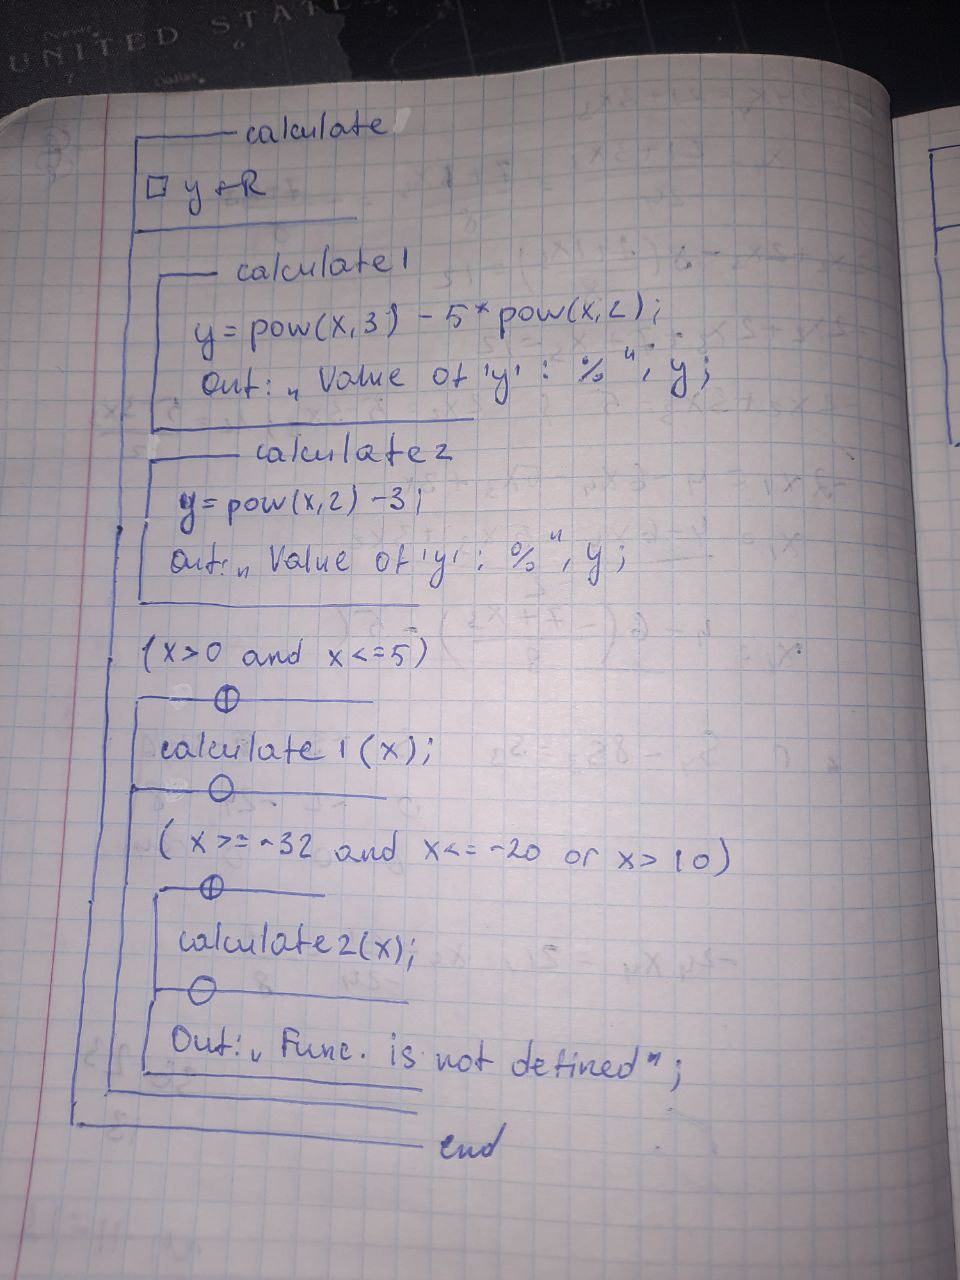 UNITED STATES
calculate
□ y ÷ R
calculate1
y = pow(x,3) - 5*pow(x,2);
Out: „ Value of 'y' : % ", y;
calculate2
y = pow(x,2) - 3;
Out: „ Value of 'y' : % ", y;
(x>0 and x<=5)
calculate1(x);
(x>=-32 and x<=-20 or x>10)
calculate2(x);
Out: „ Func. is not defined";
end